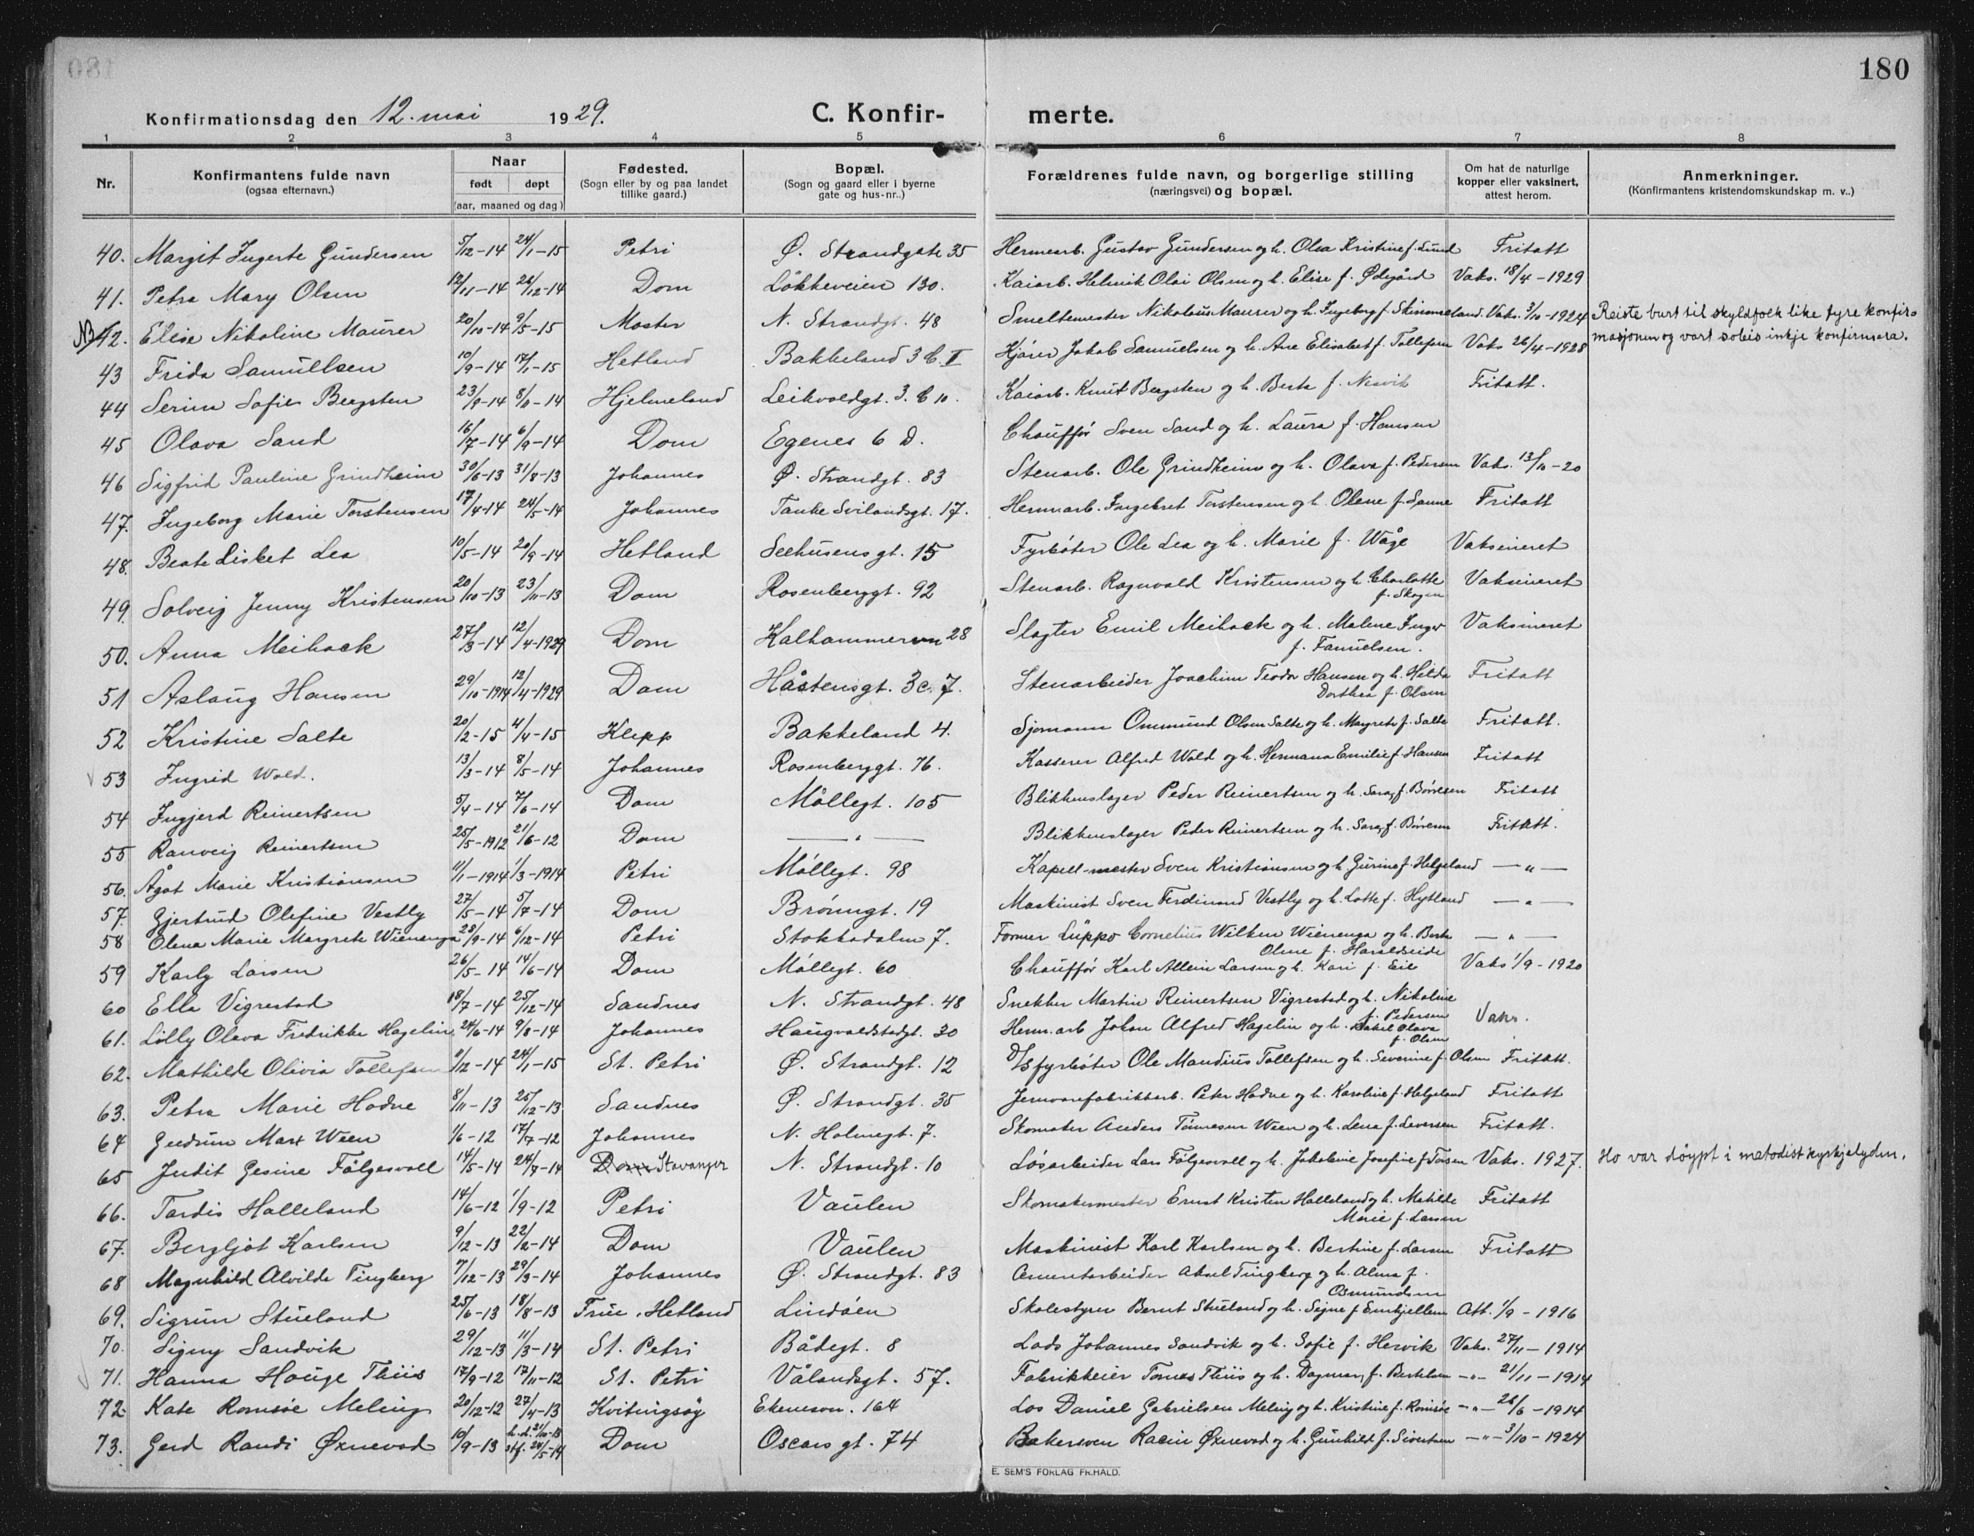 180
Konfirmationsdag den 12. mai 1929.
C. Konfirmerte.
1 2 3 4 5 6 7 8
Nr.
Konfirmantens fulde navn
(ogsaa efternavn.)
Naar
født døpt
(aar, maaned og dag)
Fødested.
(Sogn eller by og paa landet
tillike gaard.)
Bopæl.
(Sogn og gaard eller i byerne
gate og hus-nr..)
Forældrenes fulde navn, og borgerlige stilling
(næringsvei) og bopæl.
Om hat de naturlige
kopper eller vaksinert,
attest herom.
Anmerkninger.
(Konfirmantens kristendomskundskap m. v..)
40. Margit Ingerte Gundersen 5/12-14 24/1-15 Petri Ø. Strandgate 35 Hermarb. Gustav Gundersen og h. Olea Kristine f. Lund Fritatt
41. Petra Mary Olsen 12/11-14 26/12-14 Dom Løkkeveien 130. Kaiarb. Helmik Olai Olsen og h. Elise f. Ødegård Vaks. 18/4-1929
NB 42. Elise Nikoline Maurer 20/10-14 9/5-15 Moster N. Strandgt. 48 Smeltemester Nikolaus Maurer og h. Ingeborg f. Skimmeland. Vaks. 3/10-1924 Reiste burt til skyldfolk like fyre konfirmasjonen og vart soleis inkje konfirmera.
43 Frida Samuelsen 10/9-14 17/1-15 Hetland Bakkeland 3 b. II Kjører Jakob Samuelsen og h. Ane Elisabet f. Tollefsen Vaks 26/4-1928
44 Serine Sofie Bergsten 23/9-14 8/11-14 Hjelmeland Leikvoldgt. 3. b 10. Kaiarb. Knut Bergsten og h. Berta f. Nesvik Fritatt.
45 Olava Sand 16/7-14 6/9-14 Dom Egenes 6 D. Chauffør Sven Sand og h. Laura f. Hansen
46 Sigfrid Pauline Grindheim 30/6-13 31/8-13 Johannes Ø. Strandgt. 83 Stenarb. Ole Grindheim og h. Olava f. Pedersen Vaks. 13/11-20
47. Ingeborg Marie Torstensen 17/4-14 24/5-14 Johannes Tanke Svilandsgt. 17. Hermarb. Ingebret Torstensen og h. Olene f. Sanne Fritatt
48. Beate Lisket Lea 10/5-14 20/9-14 Hetland Seehusensgt. 15 Fyrbøter Ole Lea og h. Marie f. Wåge Vaksineret
49. Solveig Jenny Kristensen 20/10-13 23/11-13 Dom Rosenberggt. 92 Stenarb. Ragnvald Kristensen og h. Charlotte f. Skogen Vaksineret
50. Anna Meihack 27/3-14 12/4-1929 Dom Kalhammervn 28 Slagter Emil Meihack og h. Malene Inger f. Fanuelsen. Vaksineret
51 Aslaug Hansen 29/10-1914 12/4-1929 Dom Håsteinsgt. 3c. 7. Stenarbeider Joachim Teodor Hansen og h. Hilda Dorthea f. Olsen Fritatt
52 Kristine Salte 20/2-15 4/4-15 Klepp Bakkeland 4. Sjømann Ommund Olsen Salte og h. Margrete f. Salte Fritatt.
53 Ingrid Wold. 13/3-14 8/5-14 Johannes Rosenberggt. 76. Kasserer Alfred Wold og h. Hermana Emilie f. Hansen Fritatt
54 Ingjerd Reinertsen 5/4-14 7/6-14 Dom Møllegt. 105 Blikkenslager Peder Reinertsen og h. Sara, f. Børresen Fritatt
55 Ranveig Reinertsen 25/5-1912 21/6-12 Dom — " — Blikkenslager Peder Reinertsen og h. Sara, f. Børresen Fritatt.
56. Ågot Marie Kristiansen 11/1-1914 1/3-1914 Petri Møllegt. 98 Kapellmester Sven Kristiansen og h. Gurine f. Helgeland — " —
57. Gjertrud Olefine Vestly 27/5-14 5/7-14 Dom Brønngt. 19 Maskinist Sven Ferdinand Vestly og h. Lotte f. Hytland — " —
58 Olena Marie Margrete Wienenga 28/9-14 6/12-14 Petri Stokkadalen 7. Former Lüppo Cornelius Wilken Wienenga og h. Berta Oline f. Haraldseide — " —
59 Karly Larsen 26/5-14 14/6-14 Dom Møllegt. 60 Chauffør Karl Allein Larsen og h. Kari f. Eie Vaks 1/9-1920
60 Ella Vigrestad 18/7-14 25/12-14 Sandnes N. Strandgt. 48 Snekker Martin Reinertsen Vigrestad og h. Nikoline f. Pedersen Vaks.
61. Lolly Olava Fredrikke Hagelin 24/6-14 9/8-14 Johannes Haugvaldstadgt. 30 Herm.arb Johan Alfred Hagelin og h. Rakel Olava f. Olsen
62. Mathilde Olivia Tollefsen 11/12-14 24/1-15 St. Petri Ø. Strandgt. 12 D/S fyrbøter Ole Mandius Tollefsen og h. Severine f. Olsen Fritatt.
63. Petra Marie Hodne 8/11-13 25/12-13 Sandnes Ø. Strandgt. 35 Jernvarefabrikkarb. Peter Hodne og h. Karoline f. Helgeland Fritatt
64 Gudrun Marx Ween 1/6-12 17/7-12 Johannes N. Holmegt. 7. Skomaker Anders Tønnesen Ween og h. Lena f. Seversen Fritatt.
65 Judit Gesine Følgesvoll 14/5-14 24/7-14 Dom Stavanger N. Strandgt. 10 Løsarbeider Lars Følgesvoll og h. Jakobine Josefine f Torsen Vaks. 1927. Ho var døypt i metodistkyrkjelyden.
66. Tordis Halleland 14/6-12 1/9-12 Petri Vaulen Skomakermester Ernst Kristen Halleland og h. Matilde Marie f. Larsen Fritatt
67. Bergljot Karlsen 9/12-13 22/2-14 Dom Vaulen Maskinist Karl Karlsen og h. Bertine f. Larsen Fritatt
68 Magnhild Alvilde Tingberg 7/12-13 29/3-14 Johannes Ø. Strandgt. 83 Cementarbeider Aksel Tingberg og h. Alma f. Osmundsen
69. Sigrun Stueland 25/6-13 18/8-13 Frue, Hetland Lindøen Skolestyrer Bernt Stueland og h. Signe f Emkjellen Att. 1/9-1916
70. Signy Sandvik 29/12-13 11/3-14 St. Petri Bådegt. 8 Lods Johannes Sandvik og h. Sofie f. Hervik Vaks. 27/11-1914
71. Hanna Houge Thiis 17/9-12 17/11-12 St. Petri Vålandsgt. 57. Fabrikkeier Tomas Thiis og h. Dagmar, f. Bertelsen — " — 21/11-1914
72 Kate Romsøe Meling 20/12-12 27/4-13 Kvitingsøy Ekenesvn. 164 Los Daniel Gabrielsen Meling og h. Kristine f. Romsøe — " — 26/6-1914
73. Gerd Randi Øxnevad 10/9-13 h.d. 21/10-13 stf. 24/5-14 Dom Oscarsgt. 74 Bakersven Racin Øxnevad og h. Gunhild f. Sivertsen — " — 3/10-1924
E. SEM'S FORLAG FR.HALD.